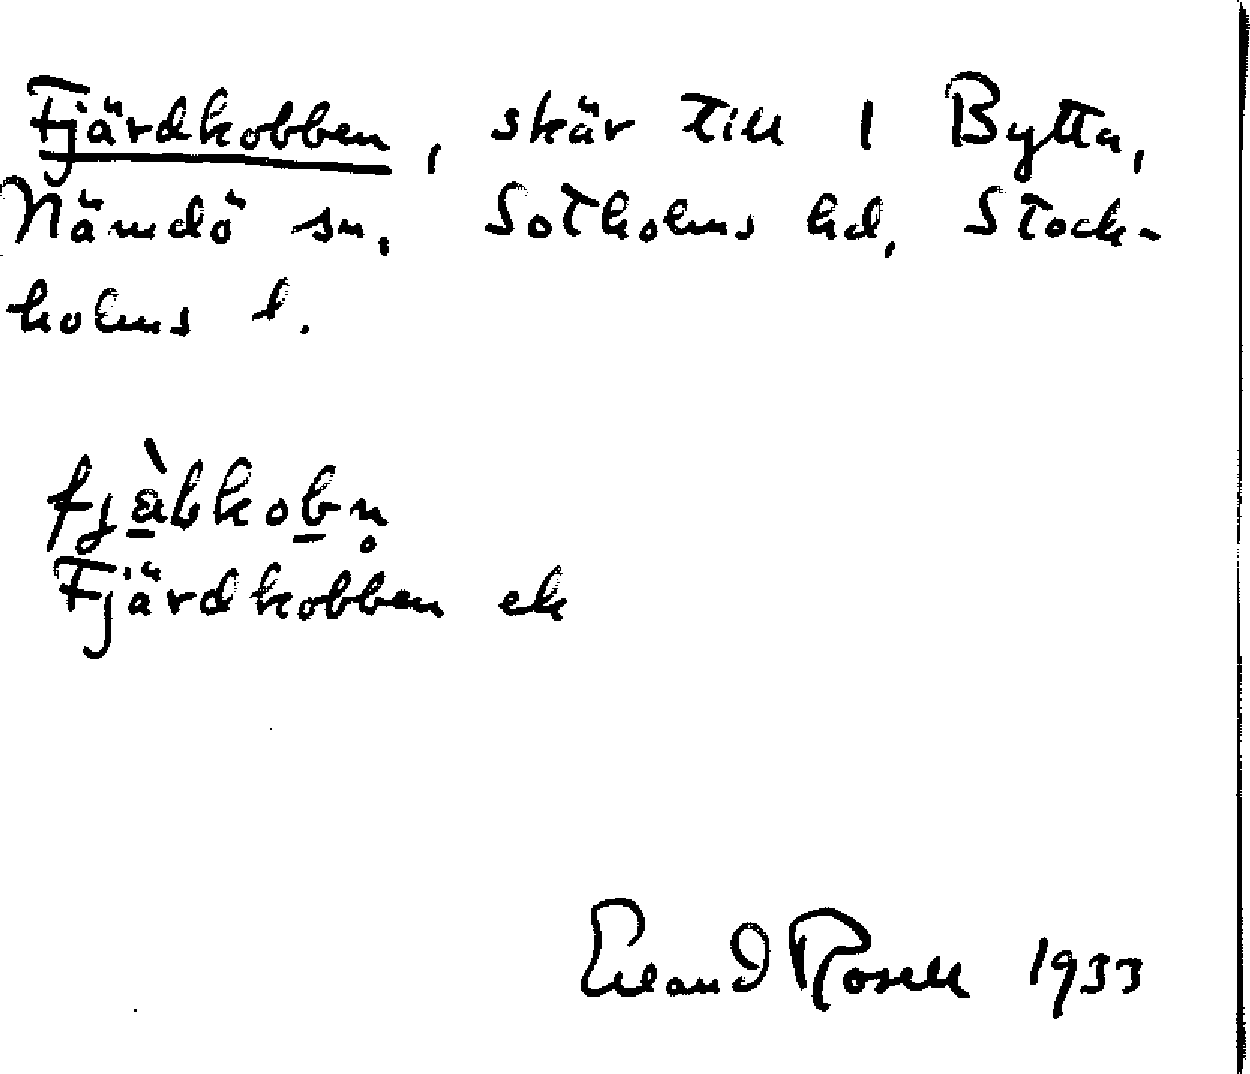 Fjärdkobben, skär till 1 Bytta,
Nämdö sn, Sotholms hd, Stock-
holms l.
Fjärdkobben ek
Erland Rosell 1933